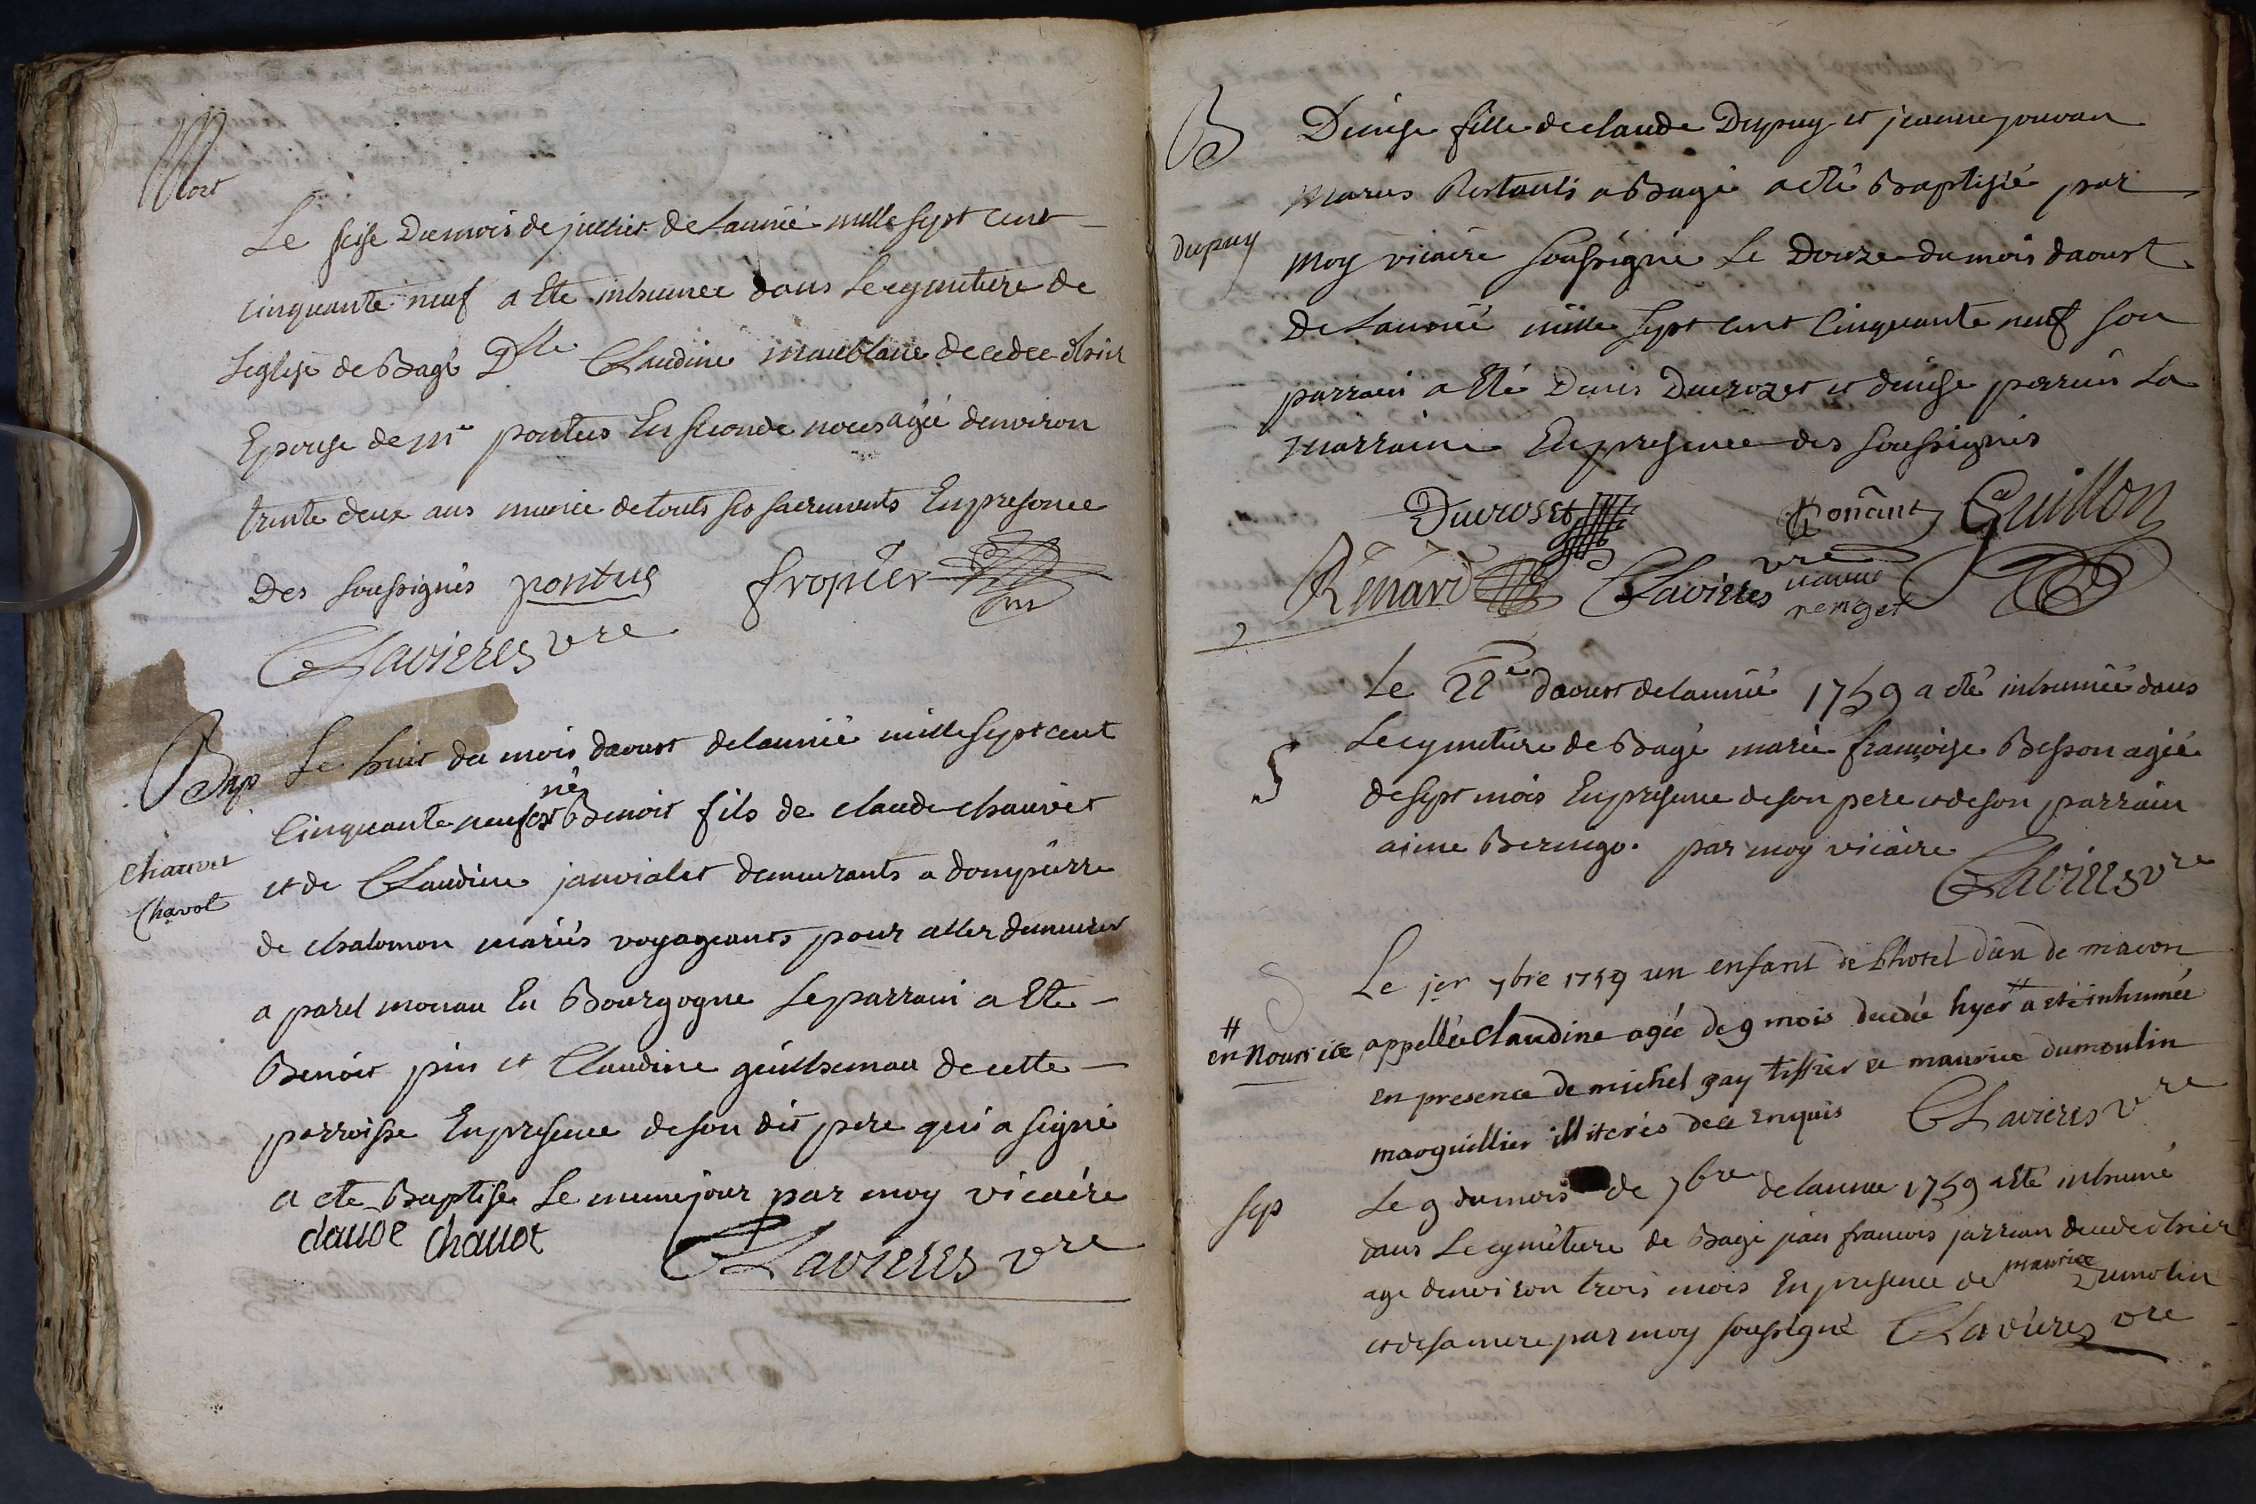 Mort
Le seise du mois de juillet de Lannié mille sept cent
cinquante neuf a Eté inhumée dans Le cymitiere de
Leglise de Bagé Dlle Claudine maublanc decedee hier
Epouse de mr pontus En seconde noces agée denviron
trente deux ans munie de touts ses sacrements En presence
Des soussignés pontus fropier
Clavieres vre
Bap Le huit du mois daoust delannié mille sept cent
né
Cinquante neuf est Benoit fils de claude chauvet
Chauvet
et de Claudine janvialet demeurants a dompierre
Chavot
de chalomon mariés voyageants pour aller demeurer
a parel monau En Bourgogne Le parrain a Eté
Benoit pin et Claudine guilhemau de cette
parroisse En presence de son dit pere qui a signé
a eté Baptisé Le meme jour par moy vicaire
claude chauot Clavieres vre
B
Denise fille de claude Dupuy et jeanne jouvan
mariés Restants a Bagé a eté Baptisée par
Dupuy
moy vicaire soussigné Le Douze du mois daoust
De Lannié mille sept cent Cinquante neuf son
parrain a Eté Denis Ducrozet et denise perrin La
marraine En presence des soussignés
Ducroset Guillon
Renard Clavieres vre
Le 22e daoust delannié 1759 a eté inhumée dans
S
Le cymitiere de Bagé marie françoise Besson agée
de sept mois En presence de son pere et de son parrain
aime Beringo. par moy vicaire
Clavieres vre
Le jer 7bre 1759 un enfant de Lhotel dieu de macon
# en Nourice
appellée Claudine agée de 9 mois decedée hyer # a eté inhumée
en presence de michel gay tissier et maurice dumoulin
marguillier illiterés de ce enquis Clavieres vre
sep
Le 9 du mois de 7bre delannee 1759 a Eté inhumé
dans Le cymitiere de Bagé jean francois jarrian decede hier
agé denviron trois mois En presence de maurice Dumolin
et de sa mere par moy soussigné Clavieres vre